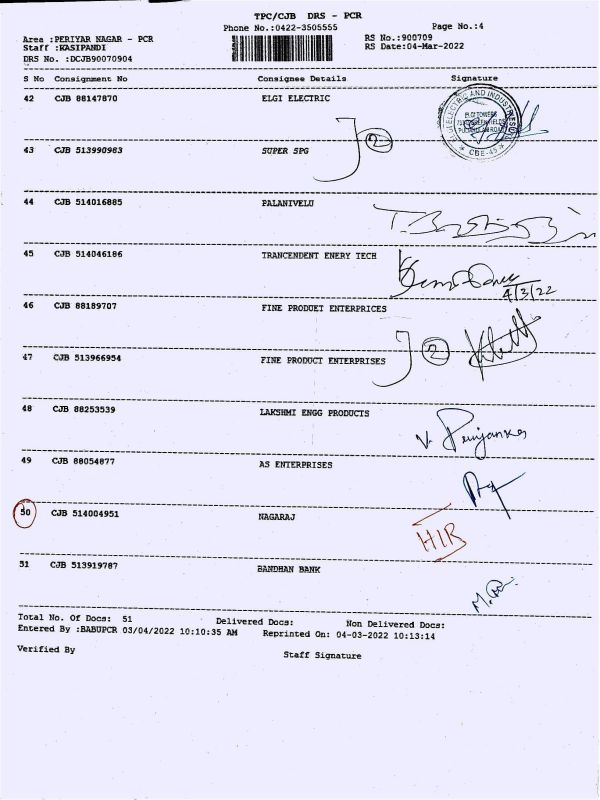 TPC/CJB DRS - PCR
Phone No.:0422-3505555 Page No.:4
Area :PERIYAR NAGAR - PCR RS No.:900709
Staff :KASIPANDI RS Date:04-Mar-2022
DRS No. :DCJB90070904
S No Consignment No Consignee Details Signature
42 CJB 88147870 ELGI ELECTRIC
ELGI TOWERS
CBE-45
2
43 CJB 513990983 SUPER SPG
44 CJB 514016885 PALANIVELU
45 CJB 514046186 TRANCENDENT ENERY TECH
4/3/22
46 CJB 88189707 FINE PRODUET ENTERPRICES
2
47 CJB 513966954 FINE PRODUCT ENTERPRISES
48 CJB 88253539 LAKSHMI ENGG PRODUCTS
49 CJB 88054877 AS ENTERPRISES
50 CJB 514004951 NAGARAJ
51 CJB 513919787 BANDHAN BANK
Total No. Of Docs: 51 Delivered Docs: Non Delivered Docs:
Entered By :BABUPCR 03/04/2022 10:10:35 AM Reprinted On: 04-03-2022 10:13:14
Verified By Staff Signature